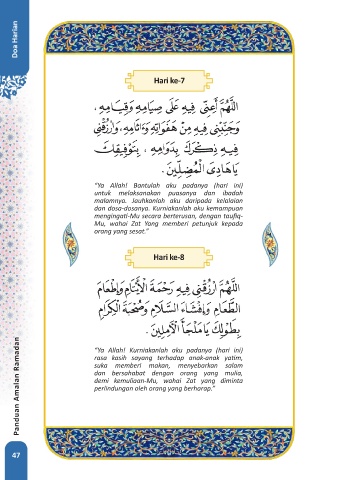 Doa Harian
Hari ke-7
اَللّٰهُمَّ أَعِنِّيْ فِيهِ عَلَى صِيَامِهِ وَقِيَامِهِ ،
وَجَنِّبْنِيْ فِيهِ مِنْ هَفَوَاتِهِ وَءَاثَامِهِ، وَارْزُقْنِيْ
فِيهِ ذِكْرَكَ بِدَوَامِهِ ، بِتَوْفِيقِكَ
يَاهَادِيَ الْمُضِلِّيْنَ .
"Ya Allah! Bantulah aku padanya (hari ini)
untuk melaksanakan puasanya dan ibadah
malamnya. Jauhkanlah aku daripada kelalaian
dan dosa-dosanya. Kurniakanlah aku kemampuan
mengingati-Mu secara berterusan, dengan taufiq-
Mu, wahai Zat Yang memberi petunjuk kepada
orang yang sesat."
Hari ke-8
اَللّٰهُمَّ ارْزُقْنِيْ فِيهِ رَحْمَةَ الْأَيْتَامِ وَإِطْعَامَ
الطَّعَامِ وَإِفْشَاءَ السَّلَامِ وَصُحْبَةَ الْكِرَامِ
بِطَوْلِكَ يَامَلْجَأَ الْآمِلِيْنَ .
"Ya Allah! Kurniakanlah aku padanya (hari ini)
rasa kasih sayang terhadap anak-anak yatim,
suka memberi makan, menyebarkan salam
dan bersahabat dengan orang yang mulia,
demi kemuliaan-Mu, wahai Zat yang diminta
perlindungan oleh orang yang berharap."
Panduan Amalan Ramadan
47